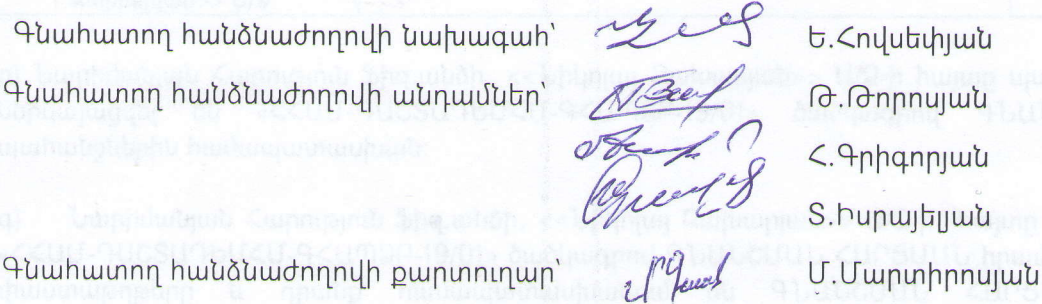 Գնահատող հանձնաժողովի նախագահ՝ Ե.Հովսեփյան
Գնահատող հանձնաժողովի անդամներ՝ Թ.Թորոսյան
Հ.Գրիգորյան
Տ.Իսրայելյան
Գնահատող հանձնաժողովի քարտուղար՝ Մ.Մարտիրոսյան